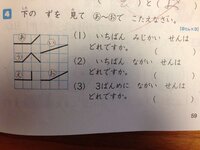 4 下の ずを 見て あ〜おで こたえなさい。
(1) いちばん みじかい せんは
どれですか。 ( )
(2) いちばん ながい せんは
どれですか。 ( )
(3) 3ばんめに ながい せんは
どれですか。 ( )
あ
い
う
え
お
59